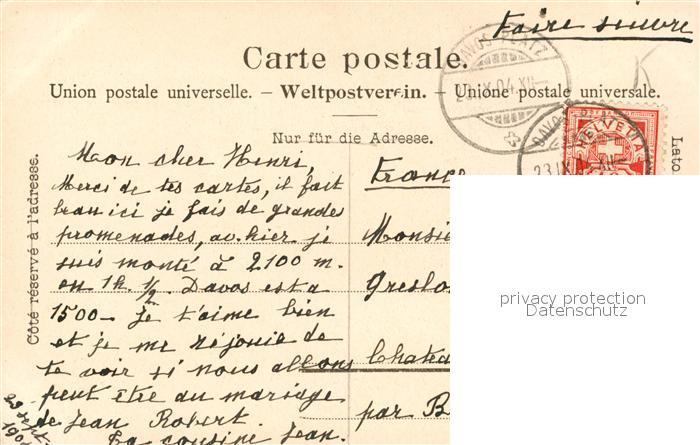 Faire suivre
Carte postale.
Union postale universelle. – Weltpostverein. – Unione postale universale.
Nur für die Adresse.
Côté réservé à l'adresse.
Lato
DAVOS-PLATZ
23.IX.04.XII
DAVOS
23.IX
XII
HELVETIA
Mon cher Henri,
Merci de tes cartes, il fait
beau ici je fais de grandes
promenades, av. hier je
suis monté à 2100 m.
en 1h. 1/2. Davos est a
1500 – Je t'aime bien
et je me réjouie de
te voir si nous allons
peut être au mariage
de Jean Robert.
Ta cousine Jean.
23 sept.
1904
France
Monsie
Greslo
Chatea
par B
privacy protection
Datenschutz